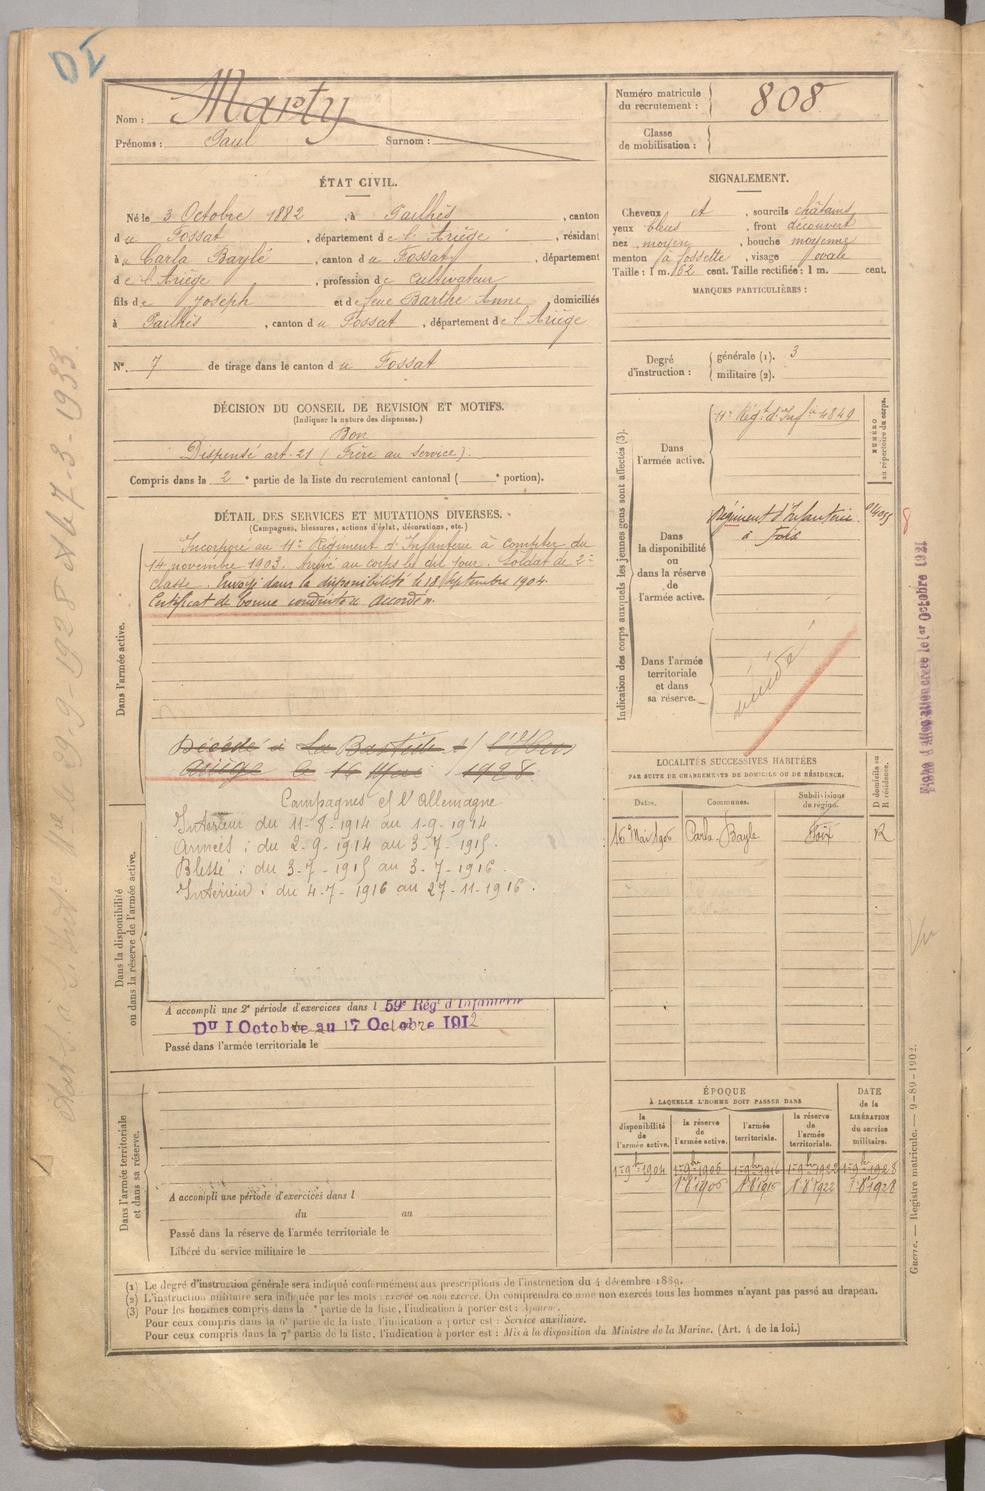 Nom : Marty
Prénoms : Paul Surnom :
Numéro matricule du recrutement : 808
Classe de mobilisation :
ÉTAT CIVIL.
Né le 3 Octobre 1882, à Pailhès, canton
du Fossat, département de l'Ariège, résidant
à Carla Baylé, canton du Fossat, département
de l'Ariège, profession de Cultivateur
fils de Joseph et de Barthe Anne, domiciliés
à Pailhès, canton du Fossat, département de l'Ariège
N° 7 de tirage dans le canton du Fossat
SIGNALEMENT.
Cheveux et, sourcils châtains
yeux bleus, front découvert
nez moyen, bouche moyenne
menton à fossette, visage ovale
Taille : 1 m. 62 cent. Taille rectifiée : 1 m. cent.
MARQUES PARTICULIÈRES :
Degré d'instruction : générale (1). 3
militaire (2).
DÉCISION DU CONSEIL DE REVISION ET MOTIFS.
(Indiquer la nature des dispenses.)
Bon
Dispensé art. 21 (Frère au service).
Compris dans la 2e partie de la liste du recrutement cantonal ( e portion).
DÉTAIL DES SERVICES ET MUTATIONS DIVERSES.
(Campagnes, blessures, actions d'éclat, décorations, etc.)
Dans l'armée active.
Incorporé au 11e Régiment d'Infanterie à compter du
14 novembre 1903. Arrivé au corps le dit jour. Soldat de 2e
classe. Envoyé dans la disponibilité le 18 Septembre 1904.
Certificat de bonne conduite accordé.
Décédé à La Bastide s/ l'Hers
Ariège le 16 1928.
Campagnes et l'Allemagne
Intérieur du 11-8-1914 au 1-9-1914
Armées : du 2-9-1914 au 3-7-1915.
Blessé : du 3-7-1915 au 3-7-1916.
Intérieur : du 4-7-1916 au 27-11-1916.
Dans la disponibilité ou dans la réserve de l'armée active.
A accompli une 2e période d'exercices dans l 59e Régt d'Infanterie
Du 1 Octobre au 17 Octobre 1912
Passé dans l'armée territoriale le
Dans l'armée territoriale et dans sa réserve.
A accompli une période d'exercices dans l
du au
Passé dans la réserve de l'armée territoriale le
Libéré du service militaire le
Indication des corps auxquels les jeunes gens sont affectés (3).
NUMÉRO au répertoire du corps.
Dans l'armée active. 11e Régt d'Infie 4849
Dans la disponibilité ou dans la réserve de l'armée active.
Régiment d'Infanterie
à Foix
Dans l'armée territoriale et dans sa réserve.
LOCALITÉS SUCCESSIVES HABITÉES
PAR SUITE DE CHANGEMENTS DE DOMICILE OU DE RÉSIDENCE.
Dates. Communes. Subdivisions de région. D domicile ou R résidence.
16 Mai 1906 Carla-Bayle Foix R
ÉPOQUE
À LAQUELLE L'HOMME DOIT PASSER DANS
DATE de la LIBÉRATION du service militaire.
la disponibilité de l'armée active. la réserve de l'armée active. l'armée territoriale. la réserve de l'armée territoriale.
1er 9bre 1904 1er 9bre 1906 1er 9bre 1916 1er 9bre 1922 1er 9bre 1928
(1) Le degré d'instruction générale sera indiqué conformément aux prescriptions de l'instruction du 4 décembre 1889.
(2) L'instruction militaire sera indiquée par les mots : exercé ou non exercé. On comprendra comme non exercés tous les hommes n'ayant pas passé au drapeau.
(3) Pour les hommes compris dans la e partie de la liste, l'indication à porter est : Ajourné.
Pour ceux compris dans la 6e partie de la liste, l'indication à porter est : Service auxiliaire.
Pour ceux compris dans la 7e partie de la liste, l'indication à porter est : Mis à la disposition du Ministre de la Marine. (Art. 4 de la loi.)
Guerre. — Registre matricule. — 9-89-1902.